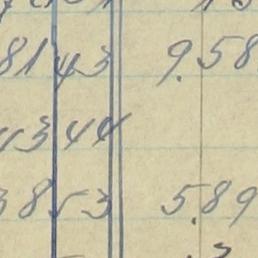 81 43 9.58
43 44
38 53 5.89